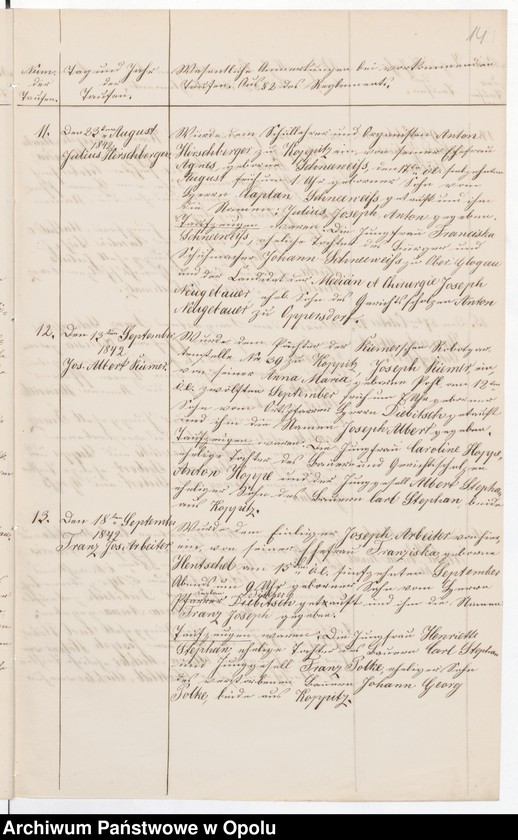 14
Num.
der
Taufen.
Tag und Jahr
der
Taufen.
Wesentliche Anmerkungen bei vorkommenden
Taufen. Aus § 2 des Reglements.
11.
Den 23ten August
1842
Julius Hirschberger
Wurde dem Schullehrer und Organisten Anton
Hirschberger zu Koppitz ein, von seiner Ehefrau
Agnes, geborne Schneeweiß, den
August früh um 1 Uhr geborner Sohn vom
Herrn Kaplan Schneeweiß getauft und ihm
die Namen: Julius, Joseph, Anton gegeben.
Taufzeugen waren: Die Jungfrau Franciska
Schneeweiß, eheliche Tochter des Bürger und
Schuhmacher Johann Schneeweiß zu Ober Glogau
und der Candidat der Medicin et Chirurgie Joseph
Neugebauer, ehel. Sohn des Gerichtsscholzen Anton
Neugebauer zu Oppersdorf.
12.
Den 13ten September
1842
Jos. Albert Kümer.
Wurde dem Pächter der Kümerschen Robotgär-
tnerstelle No 69 zu Koppitz Joseph Kümer, ein,
von seiner Anna Maria, gebornen Pohl, am 12ten
d.c. zwölften September früh um Uhr geborner
Sohn vom Ortspfarrer Herrn Diebitsch getauft
und ihm die Namen Joseph Albert gegeben.
Taufzeugen waren: Die Jungfrau Caroline Hoppe,
eheliche Tochter des Bauer und Gerichtsscholzen
Anton Hoppe und der Junggesell Albert Stephan,
ehelicher Sohn des Bauern Carl Stephan, beide
aus Koppitz.
13.
Den 18ten September
1842
Franz Jos. Arbeiter
Wurde dem Einlieger Joseph Arbeiter von hier,
ein, von seiner Ehefrau Franziska, geborne
Hentschel am 15ten d.c. fünfzehnten September
Abends um 9 Uhr geborner Sohn vom Herrn
Pfarrer Diebitsch getauft und ihm die Namen
Franz Joseph gegeben.
Taufzeugen waren: Die Jungfrau Henriette
Stephan, eheliche Tochter des Bauern Carl Stephan
Junggesell Franz Polke, ehelicher Sohn
des verstorbenen Bauern Johann Georg
Polke, beide aus Koppitz.
Archiwum Państwowe w Opolu